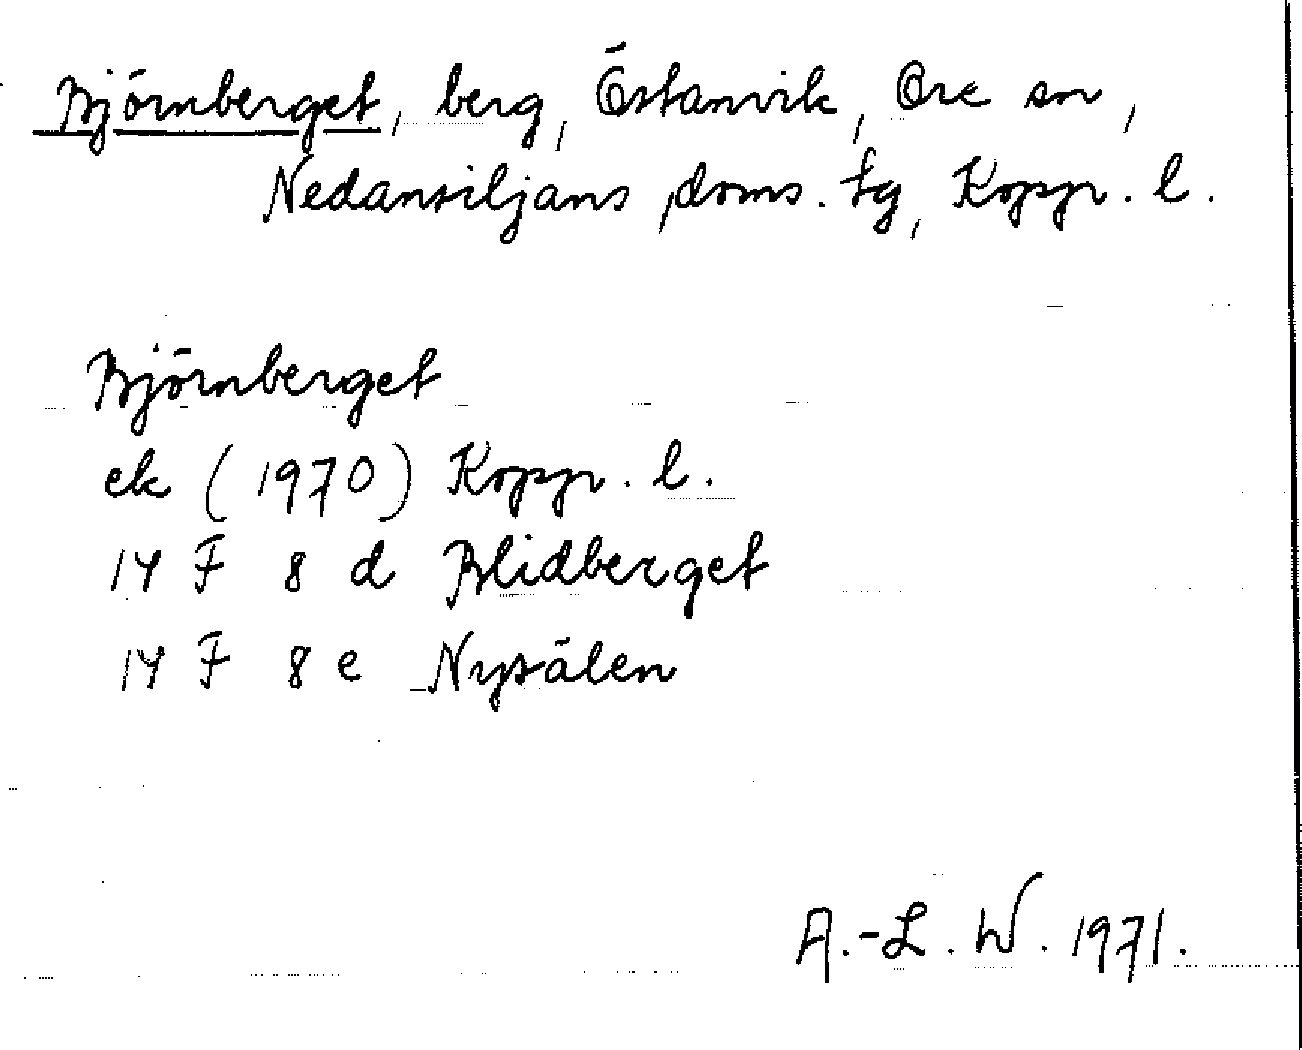 Björnberget, berg, Östanvik, Ore sn,
Nedansiljans doms. tg, Kopp. l.
Björnberget
ek (1970) Kopp. l.
14 F 8 d Blidberget
14 F 8 e Nysälen
A.-L. W. 1971.